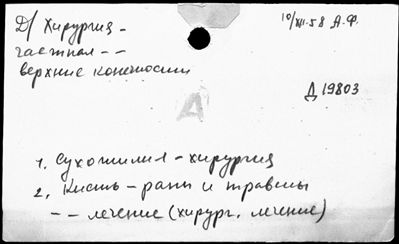 Д/ Хирургия -
частная - -
верхние конечности
10/XII-58 А.Ф.
Д 19803
А
1. Сухожилия - хирургия
2. Кисть - раны и травмы
- - лечение (хирург. лечение)